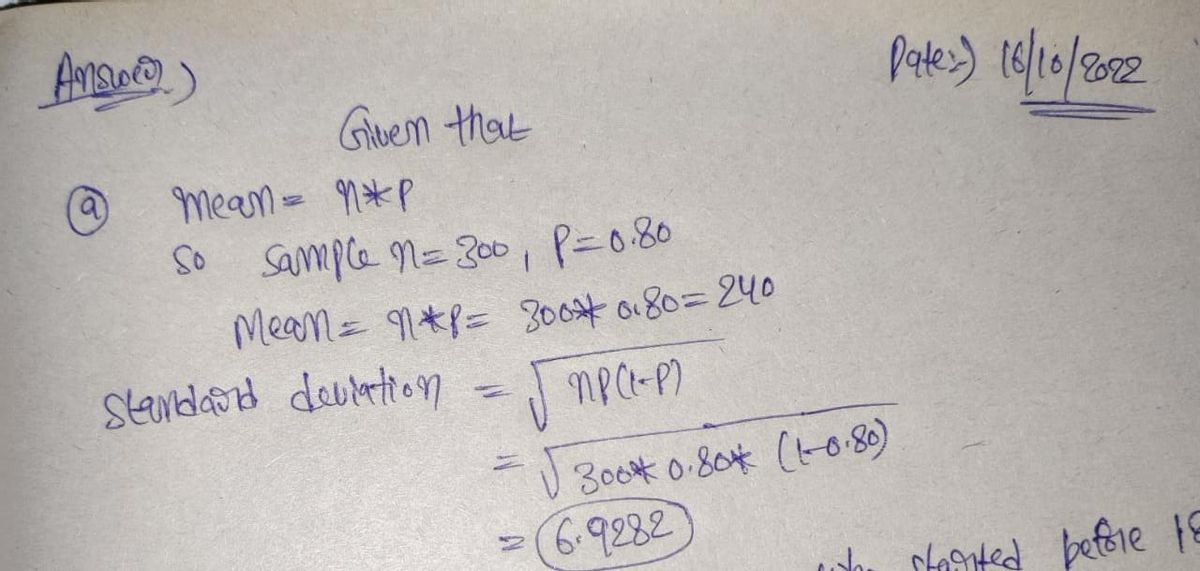 Answer)
Date:-) 16/10/2022
Given that
(a) Mean = n*p
So sample n = 300, P = 0.80
Mean = n*p = 300* 0.80 = 240
Standard deviation = √np(1-p)
= √300* 0.80* (1-0.80)
= 6.9282
started before 18